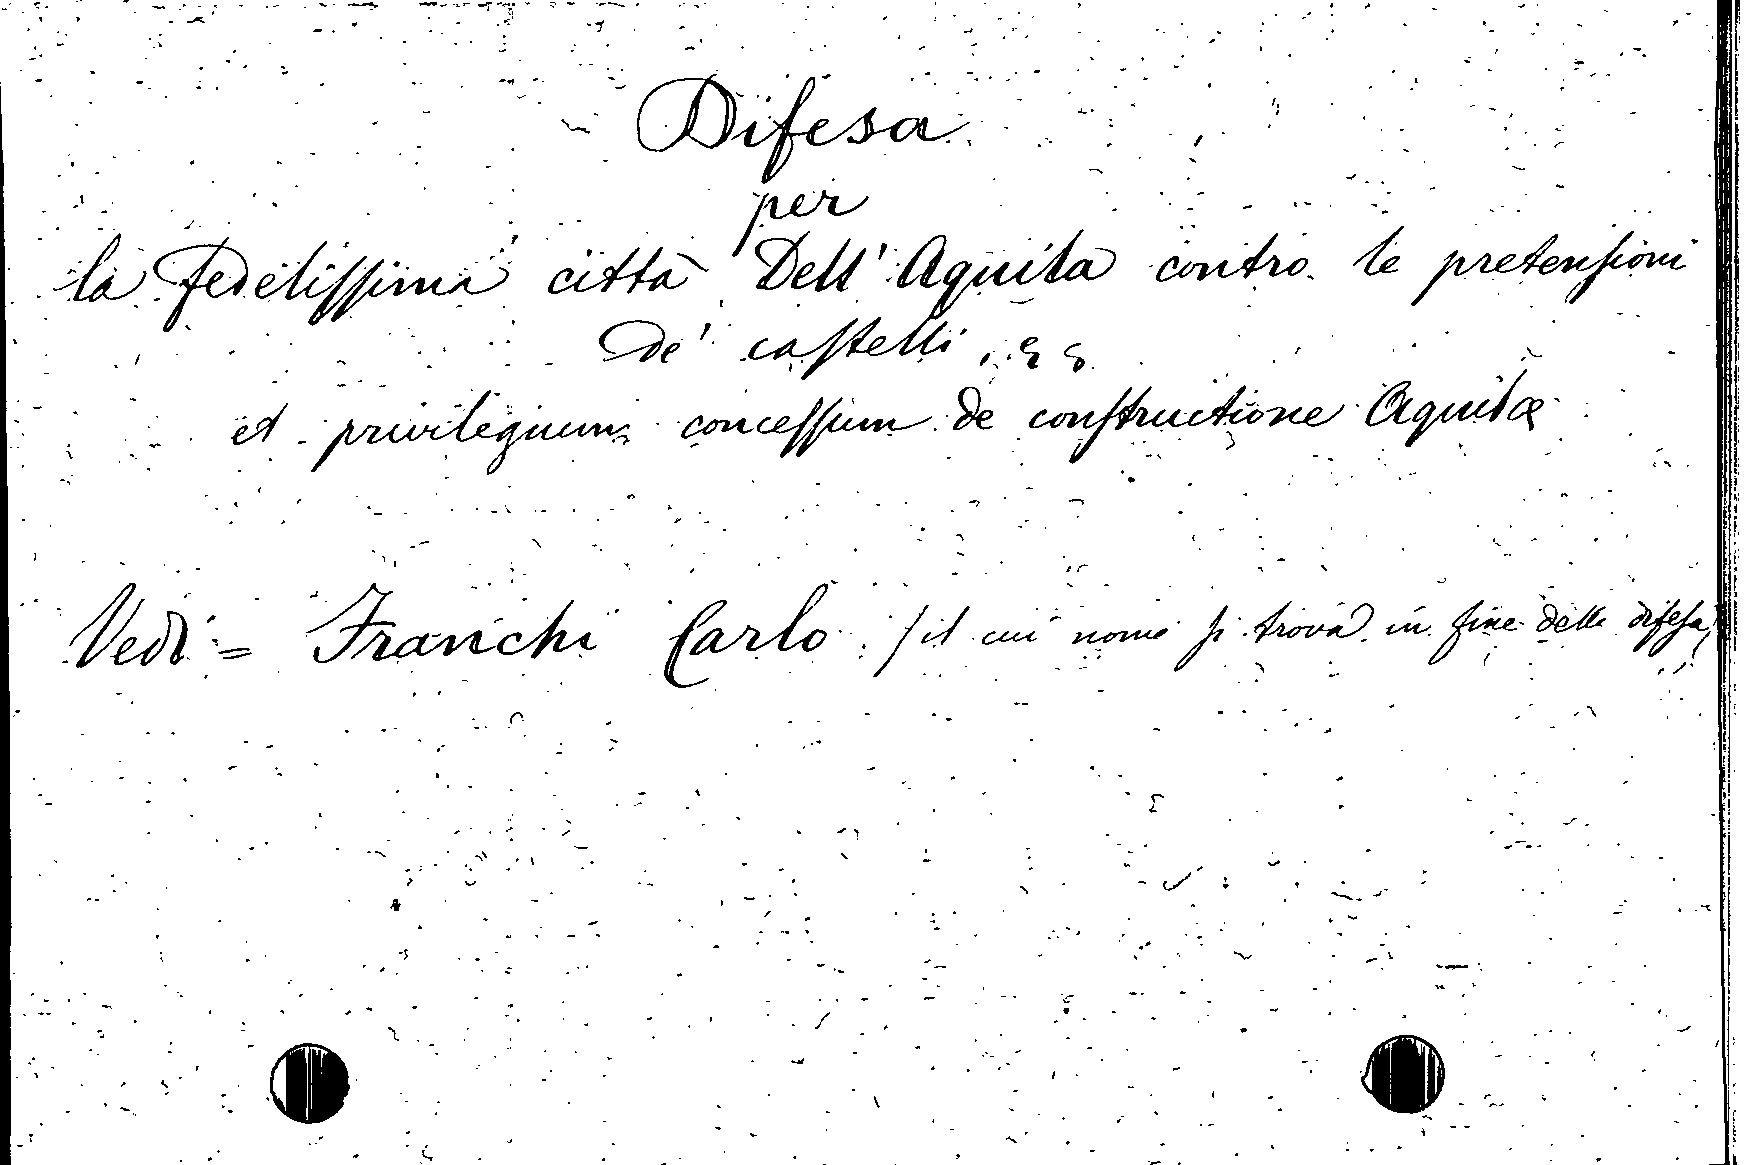 Difesa
per
la Fedelissima città Dell'Aquila contro le pretensioni
de' castelli, &&
et privilegium concessum de constructione Aquilæ
Vedi = Franchi Carlo /il cui nome si trova in fine della difesa/